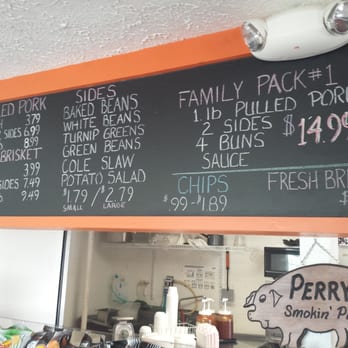 PORK
3.79
SIDES 6.99
8.99
BRISKET
3.99
SIDES 7.49
9.49
SIDES
BAKED BEANS
WHITE BEANS
TURNIP GREENS
GREEN BEANS
COLE SLAW
POTATO SALAD
$1.79 / $2.79
SMALL LARGE
FAMILY PACK #1
1 lb PULLED POR
2 SIDES $14.9
4 BUNS
SAUCE
CHIPS
.99 - 1.89
FRESH BR
$
PERRY
SMOKIN' P